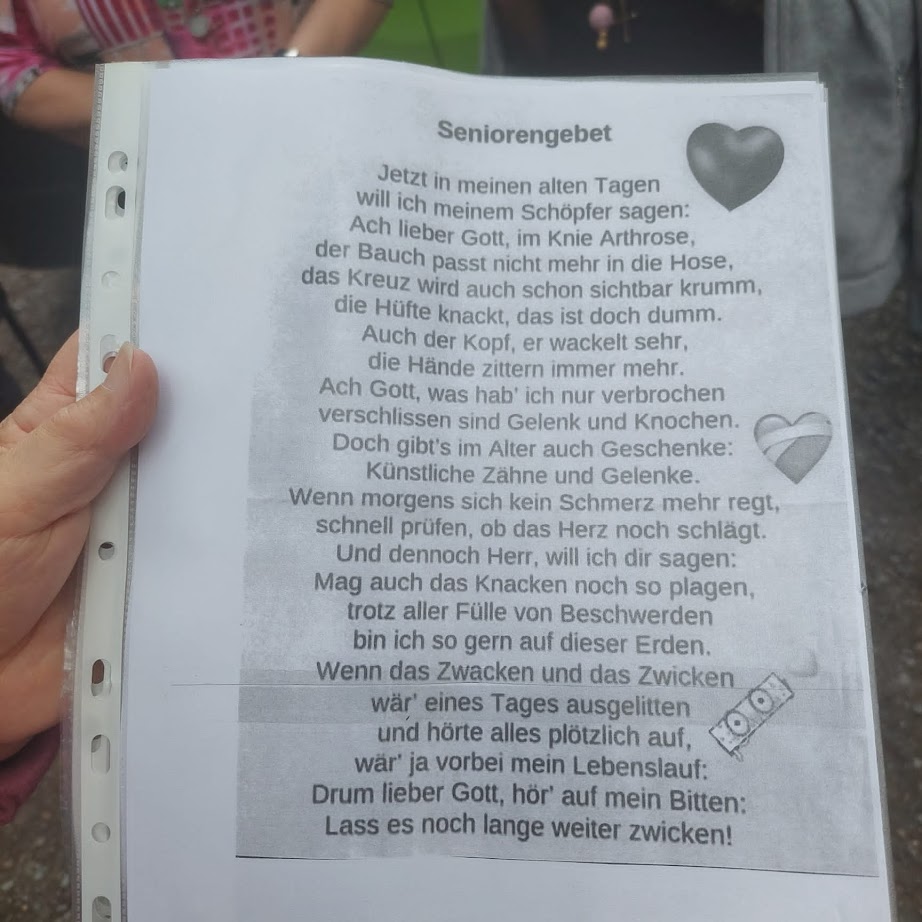 Seniorengebet
Jetzt in meinen alten Tagen
will ich meinem Schöpfer sagen:
Ach lieber Gott, im Knie Arthrose,
der Bauch passt nicht mehr in die Hose,
das Kreuz wird auch schon sichtbar krumm,
die Hüfte knackt, das ist doch dumm.
Auch der Kopf, er wackelt sehr,
die Hände zittern immer mehr.
Ach Gott, was hab' ich nur verbrochen
verschlissen sind Gelenk und Knochen.
Doch gibt's im Alter auch Geschenke:
Künstliche Zähne und Gelenke.
Wenn morgens sich kein Schmerz mehr regt,
schnell prüfen, ob das Herz noch schlägt.
Und dennoch Herr, will ich dir sagen:
Mag auch das Knacken noch so plagen,
trotz aller Fülle von Beschwerden
bin ich so gern auf dieser Erden.
Wenn das Zwacken und das Zwicken
wär' eines Tages ausgelitten
und hörte alles plötzlich auf,
wär' ja vorbei mein Lebenslauf:
Drum lieber Gott, hör' auf mein Bitten:
Lass es noch lange weiter zwicken!